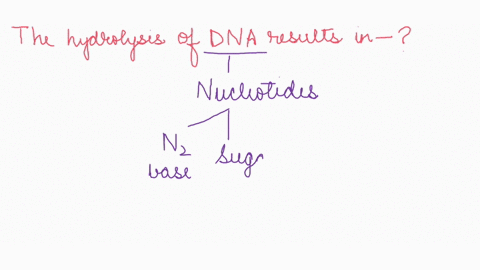 The hydrolysis of DNA results in—?
Nucleotides
N2 Sug
base